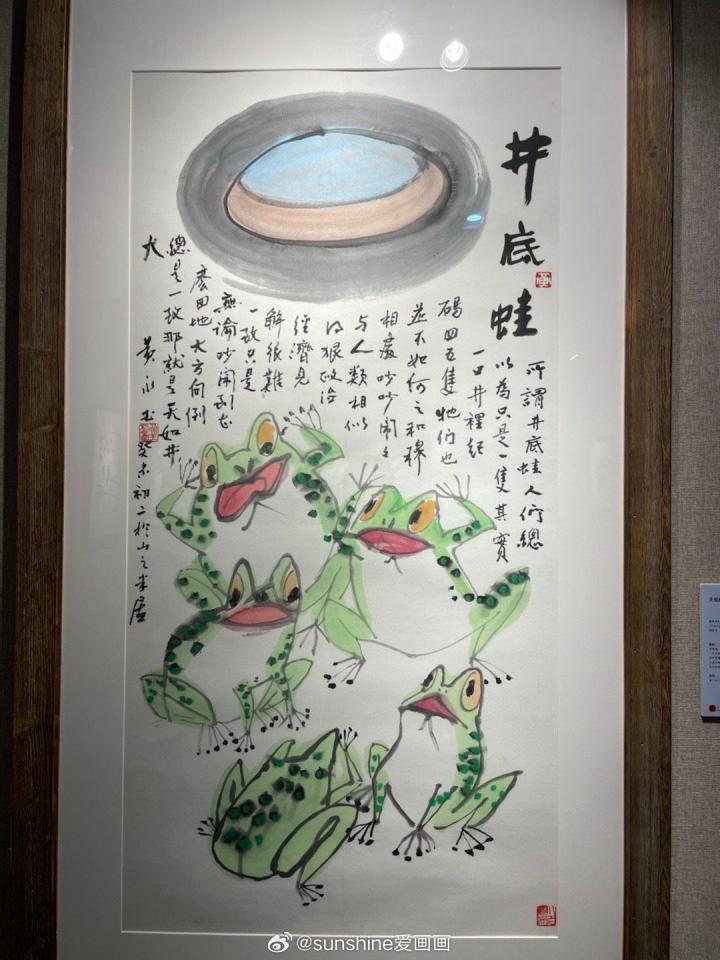 井底蛙
所謂井底蛙人們總
以為只是一隻其實
一口井裡起
碼四五隻牠們也
並不如何之和穆
相處吵吵鬧鬧
与人類相似
得狠政治
經濟見
解很難
一致只是
無論吵鬧到甚
麼田地大方向倒
總是一致那就是天如井
大
黃永玉
癸未初二於山之半居
@sunshine爱画画